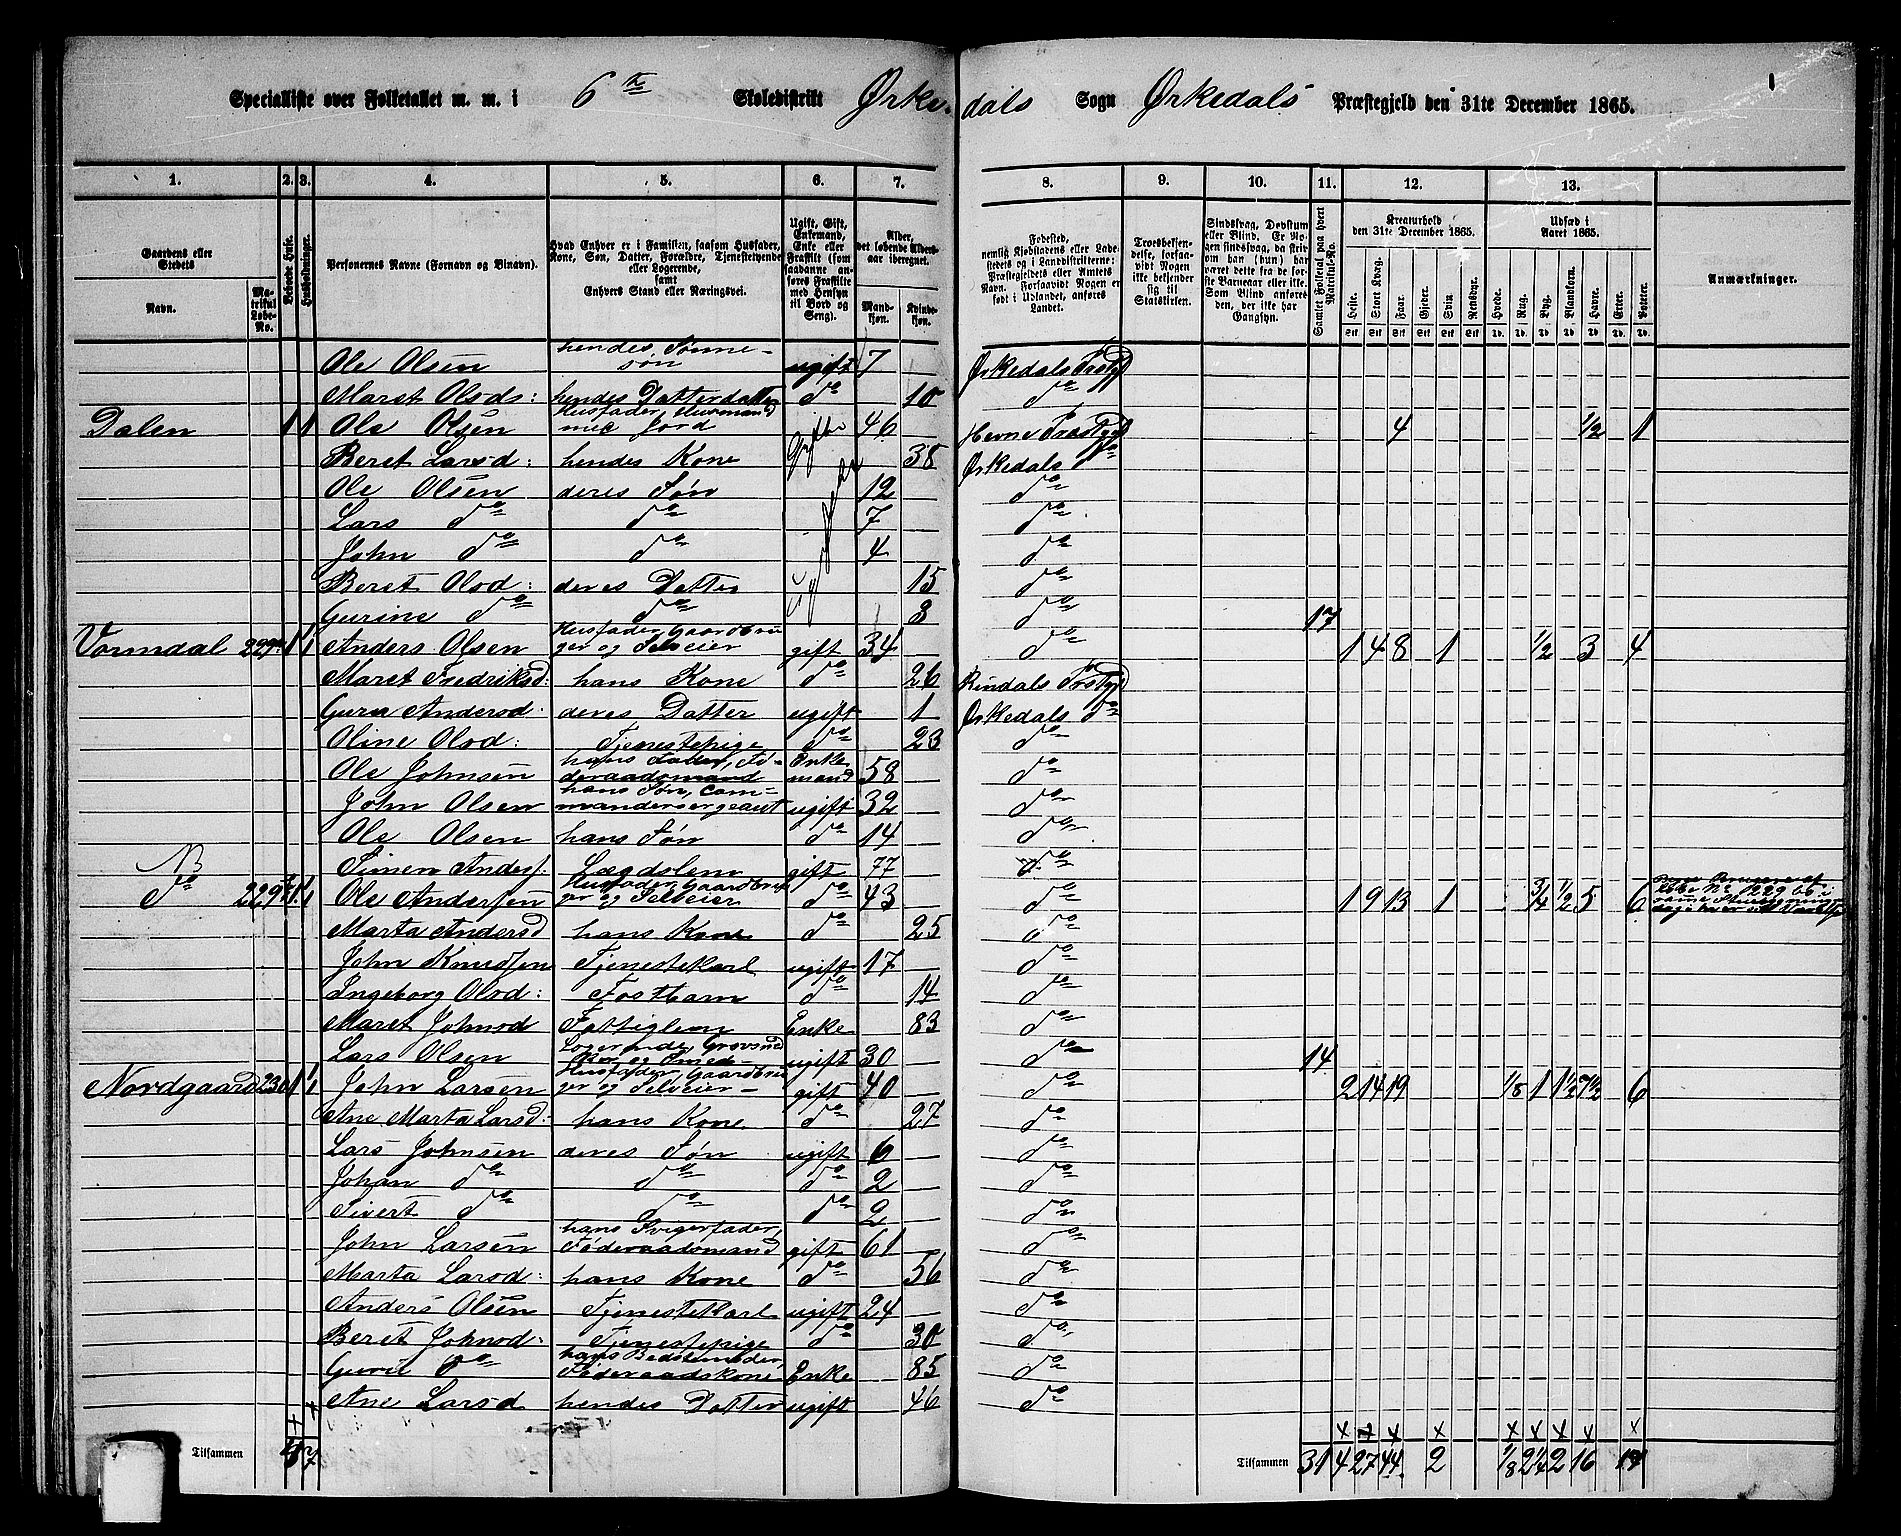 Specialliste over Folketallet m. m. i 6te Skoledistrikt Ørkedals Sogn Ørkedals Præstegjeld den 31te December 1865.
1. 2. 3. 4. 5. 6. 7. 8. 9. 10. 11. 12. 13.
Gaardens eller Stedets
Navn.
Matrikul Løbe-No.
Beboede Huse.
Husholdninger.
Personernes Navne (Fornavn og Binavn).
Hvad Enhver er i Familien, saasom Husfader, Kone, Søn, Datter, Forældre, Tjenestetyende eller Logerende, samt Enhvers Stand eller Næringsvei.
Ugift, Gift, Enkemand, Enke eller Fraskilt (som saadanne anføres Fraskilte med Hensyn til Bord og Seng).
Alder, det løbende Aldersaar iberegnet.
Mandkøn. Kvindekøn.
Fødested, nemlig Kjøbstadens eller Ladestedets og i Landdistrikterne: Præstegjeldets eller Amtets Navn. Forsaavidt Nogen er født i Udlandet, anføres Landet.
Troesbekjendelse, forsaavidt Nogen ikke bekjender sig til Statskirken.
Sindssvag, Døvstum eller Blind. Er Nogen sindssvag, da skrives om han (hun) har været dette fra de første Barneaar eller ikke. Som Blind anføres den, der ikke har Gangsyn.
Samlet Folketal paa hvert Matrikul-No.
Kreaturhold den 31te December 1865.
Heste. Stort Kvæg. Faar. Gjeder. Svin. Rensdyr.
Udsæd i Aaret 1865.
Hvede. Rug. Byg. Blandkorn. Havre. Erter. Poteter.
Anmærkninger.
Ole Olsen hendes Sønnesøn ugift 7 Ørkedals Præstgjd
Maret Olsd: hendes Datterdatter do 10 do
Dalen 1 1 Ole Olsen Husfader, Husmand med Jord Gifte 46 Hevne Præstgjd 4 1/2 1
Beret Larsd: hendes Kone 38 Ørkedals do
Ole Olsen deres Søn 12 do
Lars do do 7 do
John do do 4 do
Beret Olsd: deres Datter 15 do
Gurine do do 8 do 17
Vormdal 229 1 1 Anders Olsen Husfader, Gaardbruger og Selveier gift 34 do 1 4 8 1 1/2 3 4
Maret Fredriksd: hans Kone do 26 Rindals Præstgjd
Guru Andersd: deres Datter ugift 1 Ørkedals do
Oline Olsd: Tjenestepige do 23 do
Ole Johnsen hans Fader, Føderaadsmand Enkemand 58 do
John Olsen hans Søn, Commandersergeant ugift 32 do
Ole Olsen hans Søn do 14 do
Simen Andersf. Lægdslem gift 77 do
NB
do 229 1 1 Ole Andersen Husfader, Gaardbruger og Selveier do 43 do 1 9 13 1 3/4 1/2 5 6
Marta Andersd hans Kone do 25 do
John Knudsen Tjenestekarl ugift 17 do
Ingeborg Olsd: Fosterbarn do 14 do
Maret Johnsd Fattiglem Enke 83 do
Lars Olsen Logerende, Grovsmed ugift 30 do 14
Nordgaard 230 1 1 John Larsen Husfader, Gaardbruger og Selveier gift 40 do 2 14 19 1/8 1 1 1/2 7 1/2 6
Ane Marta Larsd: hans Kone do 27 do
Lars Johnsen deres Søn ugift 6 do
Johan do do do 2 do
Sivert do do do 2 do
John Larsen hans Svigerfader, Føderaadsmand gift 61 do
Marta Larsd: hans Kone do 56 do
Anders Olsen Tjenestekarl ugift 24 do
Beret Johnsd: Tjenestepige do 30 do
Guril do hans Bedstemoder, Føderaadskone Enke 85 do
Ane Larsd hendes Datter ugift 46 do
Tilsammen
Tilsammen 31 4 27 44 2 1/8 2 1/4 2 16